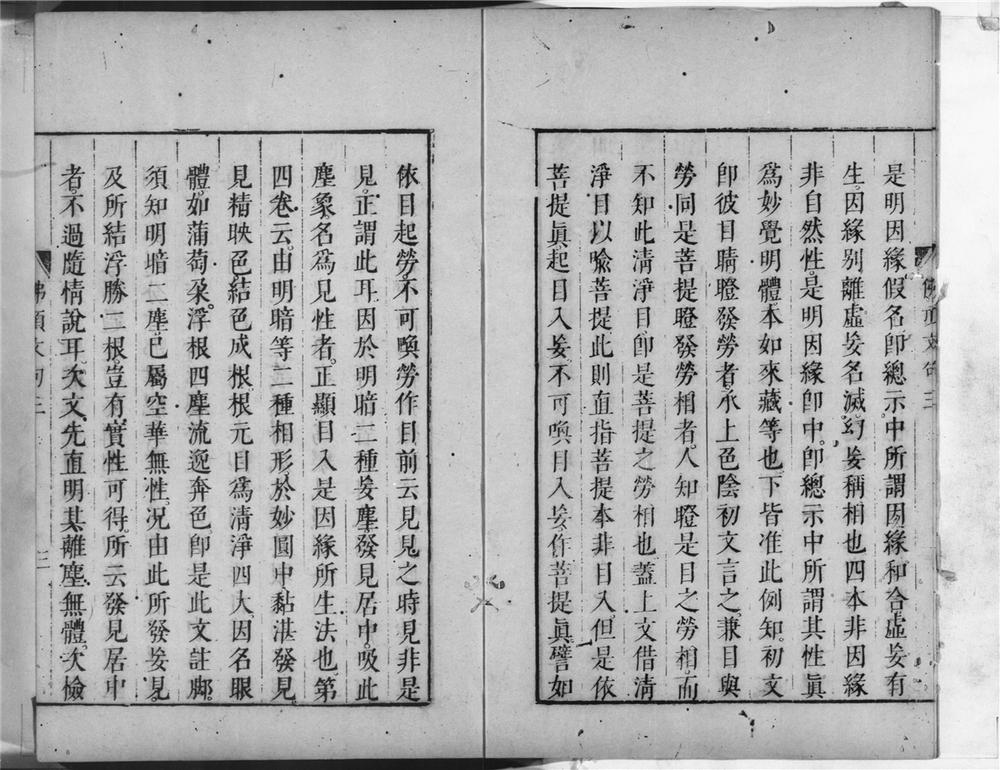 佛頂文句三
是明因緣假名卽總示中所謂因緣和合虛妄有
生。因緣別離虛妄名滅。幻妄稱相也。四本非因緣
非自然性。是明因緣卽中。卽總示中所謂其性眞
爲妙覺明體。本如來藏等也。下皆准此例知。初文
卽彼目睛瞪發勞者。承上色陰初文言之。兼目與
勞同是菩提瞪發勞相者。人知瞪是目之勞相而
不知此淸淨目卽是菩提之勞相也。蓋上文借淸
淨目以喩菩提。此則直指菩提本非目入。但是依
菩提眞。起目入妄。不可喚目入妄。作菩提眞。譬如
依目起勞。不可喚勞作目。前云見見之時。見非是
見。正謂此耳。因於明暗二種妄塵。發見居中。吸此
塵象。名爲見性者。正顯目入是因緣所生法也。第
四卷云。由明暗等二種相形。於妙圓中黏湛發見。
見精映色。結色成根。根元目爲淸淨四大。因名眼
體。如蒲萄朶。浮根四塵。流逸奔色。卽是此文註脚。
須知明暗二塵。已屬空華無性。況由此所發妄見。
及所結浮勝二根。豈有實性可得。所云發見居中
者。不過隨情說耳。次文。先直明其離塵無體。次檢
佛頂文句三
三